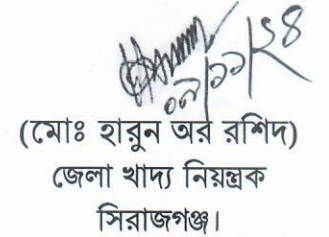 ০৭/১১/২৪
(মোঃ হারুন অর রশিদ)
জেলা খাদ্য নিয়ন্ত্রক
সিরাজগঞ্জ।